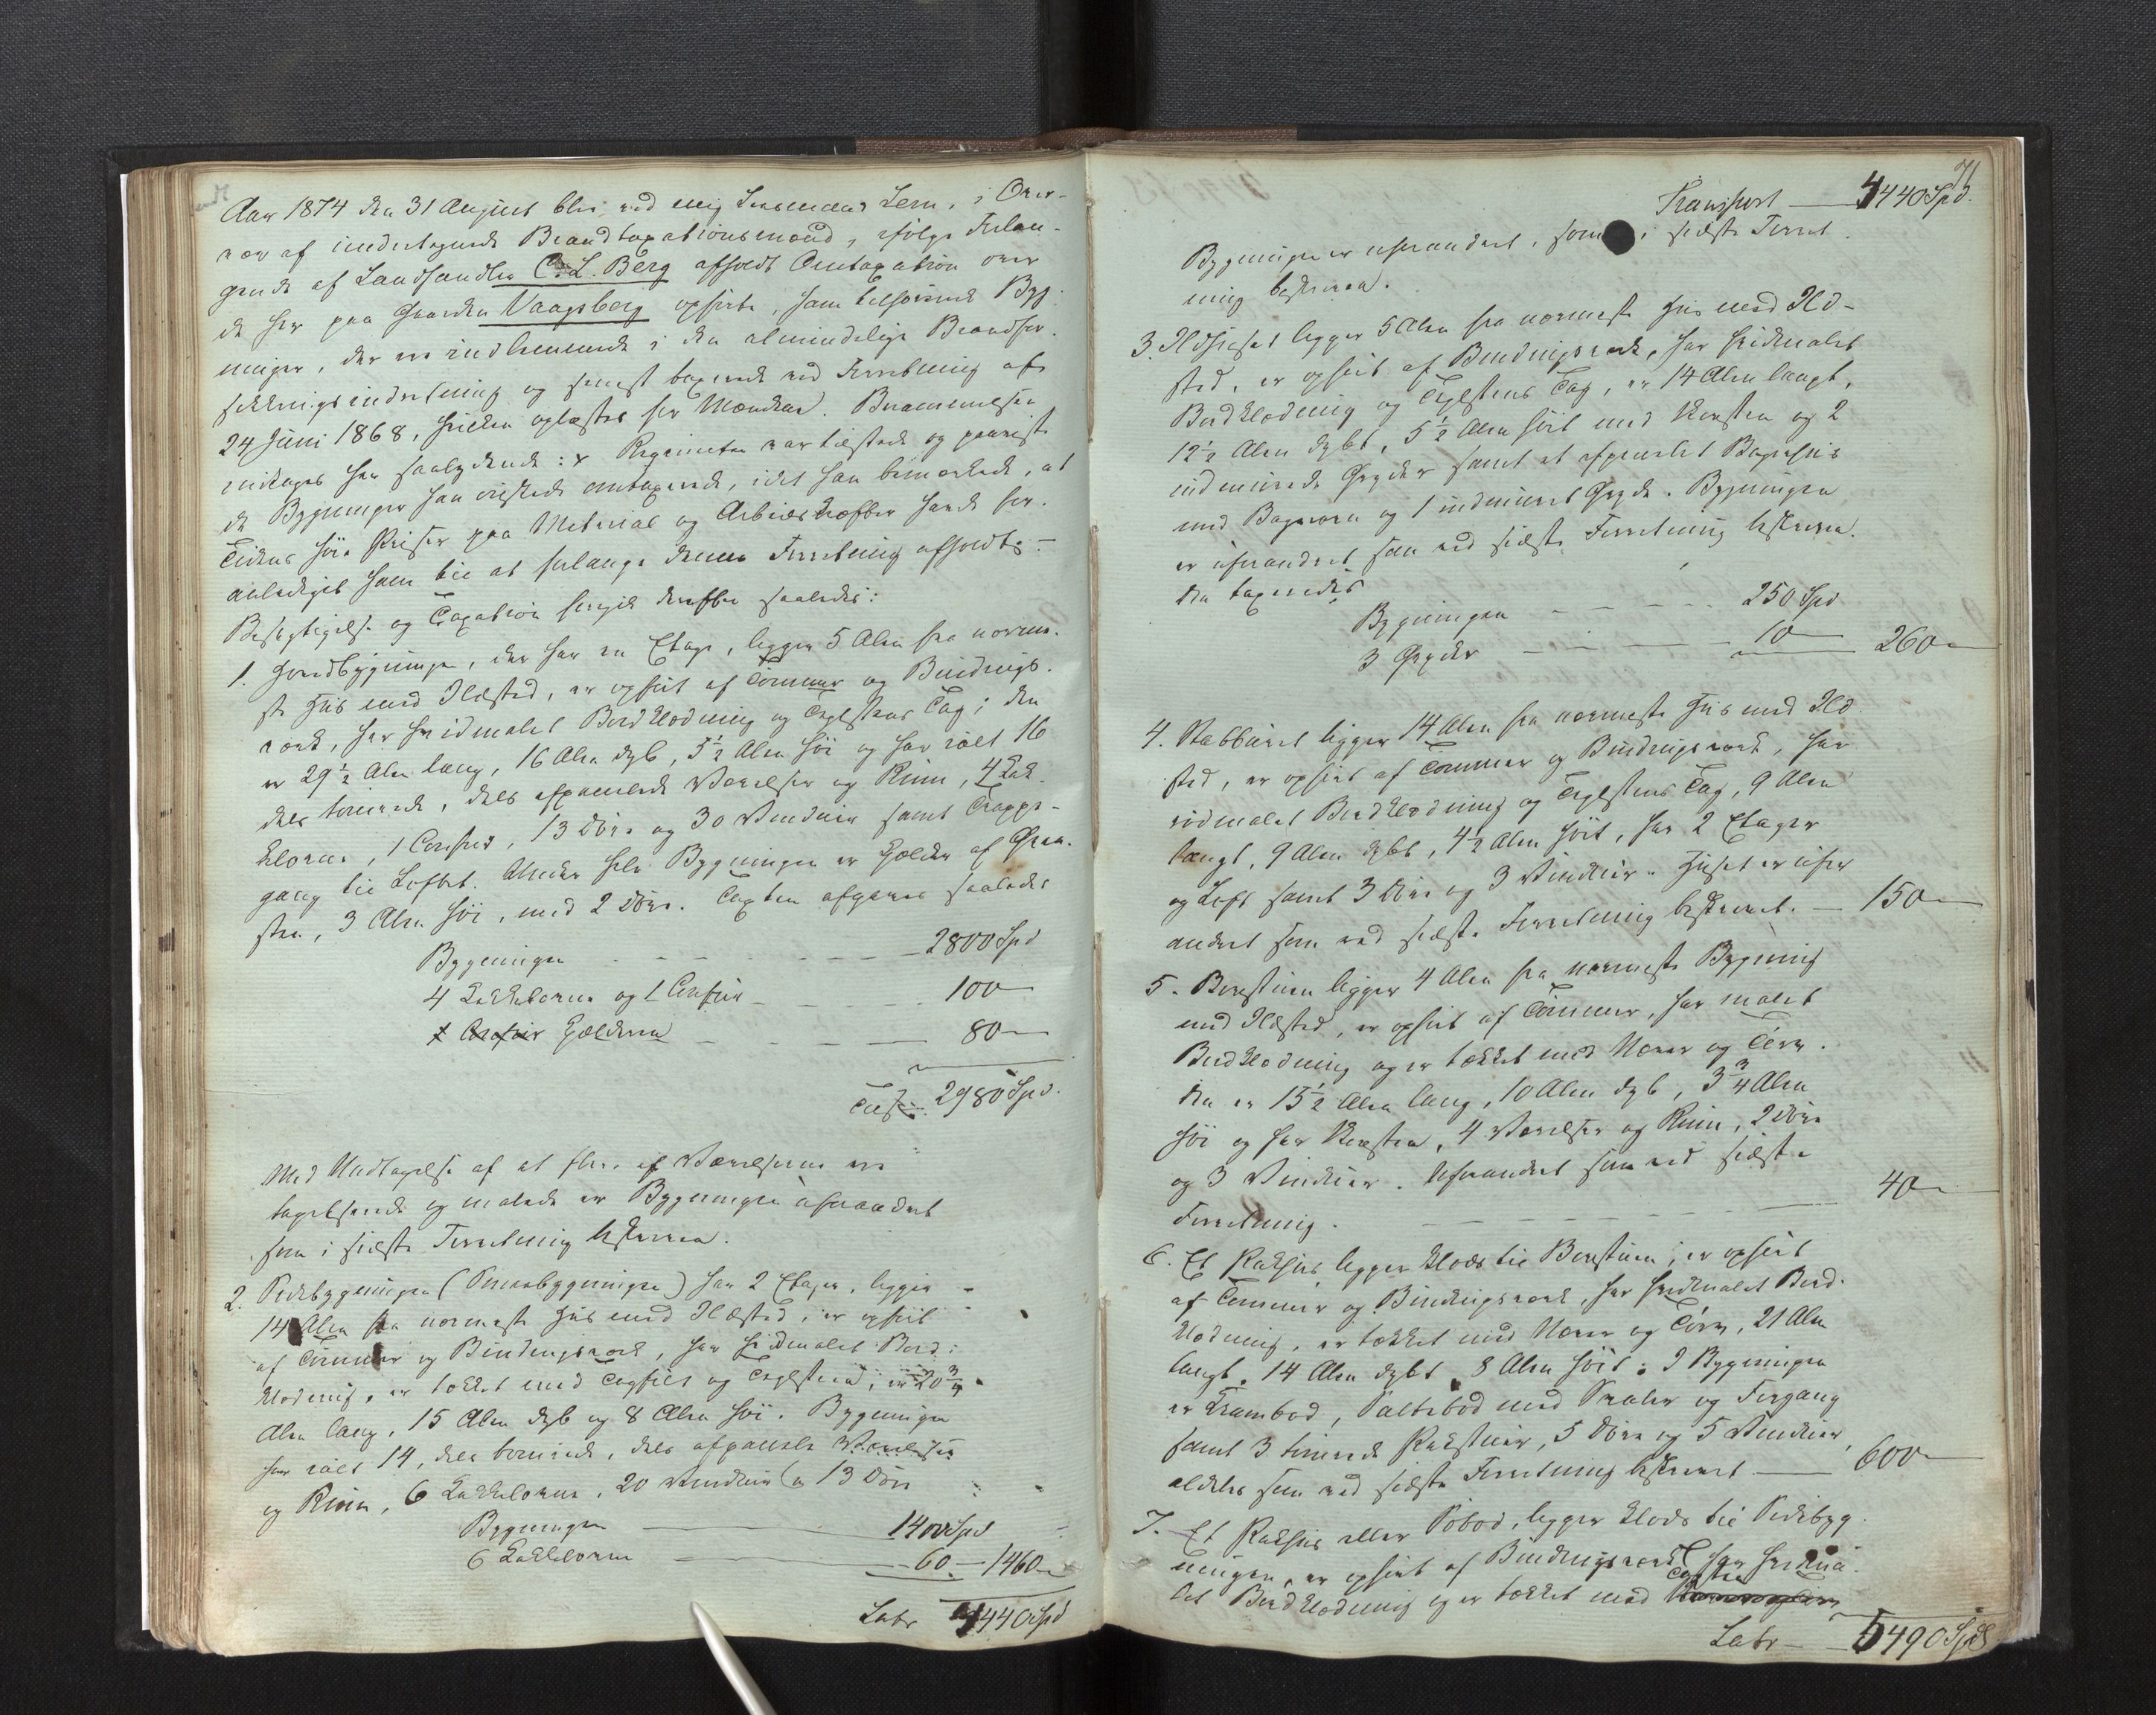 Aar 1874 den 31 August blev ved mig Lensmand Lem, i Over-
vær af undertegnede Brandtaxationsmænd, ifølge Forlan-
gende af Landhandler C. L. Berg afholdt Omtaxation over
de her paa Gaarden Vaagsberg opførte, ham tilhørende Byg-
ninger, der ere indlemmede i den almindelige Brandfor-
sikkringsindretning og senest taxerede ved Forretning af
24 Juni 1868, hvilken oplæstes for Mændene. Benævnelsen
indtages her saalydende: Reqvirenten var tilstede og paaviste
de Bygninger han ønskede omtaxerede, idet han bemærkede, at
Tidens høie Priser paa Material og Arbeidskræfter havde for-
anlediget ham til at forlange denne Forretning afholdt. –
Besigtigelse og Taxation foregik derefter saaledes:
1. Hovedbygningen, der har en Etage, ligger 5 Alen fra nærme-
ste Huus med Ildsted, er opført af Tømmer og Bindings-
værk, har hvidmalet Bordklædning og Teglstens Tag; den
er 29½ Alen lang, 16 Alen dyb, 5½ Alen høi og har ialt 16
dels tømrede, dels afpanelede Værelser og Rum, 4 Kak-
kelovne, 1 Comfur, 13 Døre og 30 Vinduer samt Trappe-
gang til Loftet. Under hele Bygningen er Kjælder af Graa-
sten, 3 Alen høi, med 2 Døre. Taxten afgaves saaledes
Bygningen – – – 2800 Spd
4 Kakkelovne og 1 Comfur – – 100 –
Kjælderen – – 80 –
Tils: 2980 Spd.
Med Undtagelse af at flere af Værelserne ere
tapetserede og malede er Bygningen uforandret
som i sidste Forretning beskreven.
2. Sidebygningen (Smaabygningen) har 2 Etager, ligger
14 Alen fra nærmeste Huus med Ildsted, er opført
af Tømmer og Bindingsværk, har hvidmalet Bord-
klædning, er tækket med Tagskifer og Teglsten, er 20¾
Alen lang, 15 Alen dyb og 8 Alen høi. Bygningen
har ialt 14, dels tømrede, dels afpanelede Værelser
og Rum, 6 Kakkelovne, 20 Vinduer og 13 Døre
Bygningen – 1400 Spd
6 Kakkelovne – 60 – 1460 –
Latr 4440 Spd
71
Transport – 4440 Spd.
Bygningen er uforandret, som i sidste Forret-
ning beskreven.
3. Ildhuset ligger 5 Alen fra nærmeste Huus med Ild-
sted, er opført af Bindingsværk, har hvidmalet
Bordklædning og Teglstens Tag, er 14 Alen langt,
12½ Alen dybt, 5½ Alen høit med Skorsten og 2
indmurede Gryder samt et afpanelet Bagerhuus
med Bagerovn og 1 indmuret Gryde. Bygningen
er uforandret som ved sidste Forretning beskreven.
Den taxeredes
Bygningen – – – 250 Spd
3 Gryder – – – 10 – 260 –
4. Stabburet ligger 14 Alen fra nærmeste Huus med Ild-
sted, er opført af Tømmer og Bindingsværk, har
rødmalet Bordklædning og Teglstens Tag, 9 Alen
langt, 9 Alen dybt, 4½ Alen høit, har 2 Etager
og Loft samt 3 Døre og 3 Vinduer. Huset er ufor-
andret som ved sidste Forretning beskrevet. – 150 –
5. Borgstuen ligger 4 Alen fra nærmeste Bygning
med Ildsted, er opført af Tømmer, har malet
Bordklædning og er tækket med Næver og Törv.
Den er 15½ Alen lang, 10 Alen dyb, 3¾ Alen
høi og har Skorsten, 4 Værelser og Rum, 2 Døre
og 3 Vinduer. Uforandret som ved sidste
Forretning. – – – 40 –
6. Et Pakhuus, ligger klods til Borgstuen, er opført
af Tømmer og Bindingsværk, har hvidmalet Bord-
klædning, er tækket med Næver og Törv, 21 Alen
langt, 14 Alen dybt, 8 Alen høit. I Bygningen
er Krambod, Saltebod med Svaler og Forgang
samt 3 tømrede Pakstuer, 5 Døre og 5 Vinduer,
aldeles som ved sidste Forretning beskrevet – 600 –
7. Et Pakhuus eller Søbod, ligger klods til Sidebyg-
ningen, er opført af Bindingsværk, har hvidma-
let Bordklædning og er tækket med Teglsten
Latr – 5490 Spd